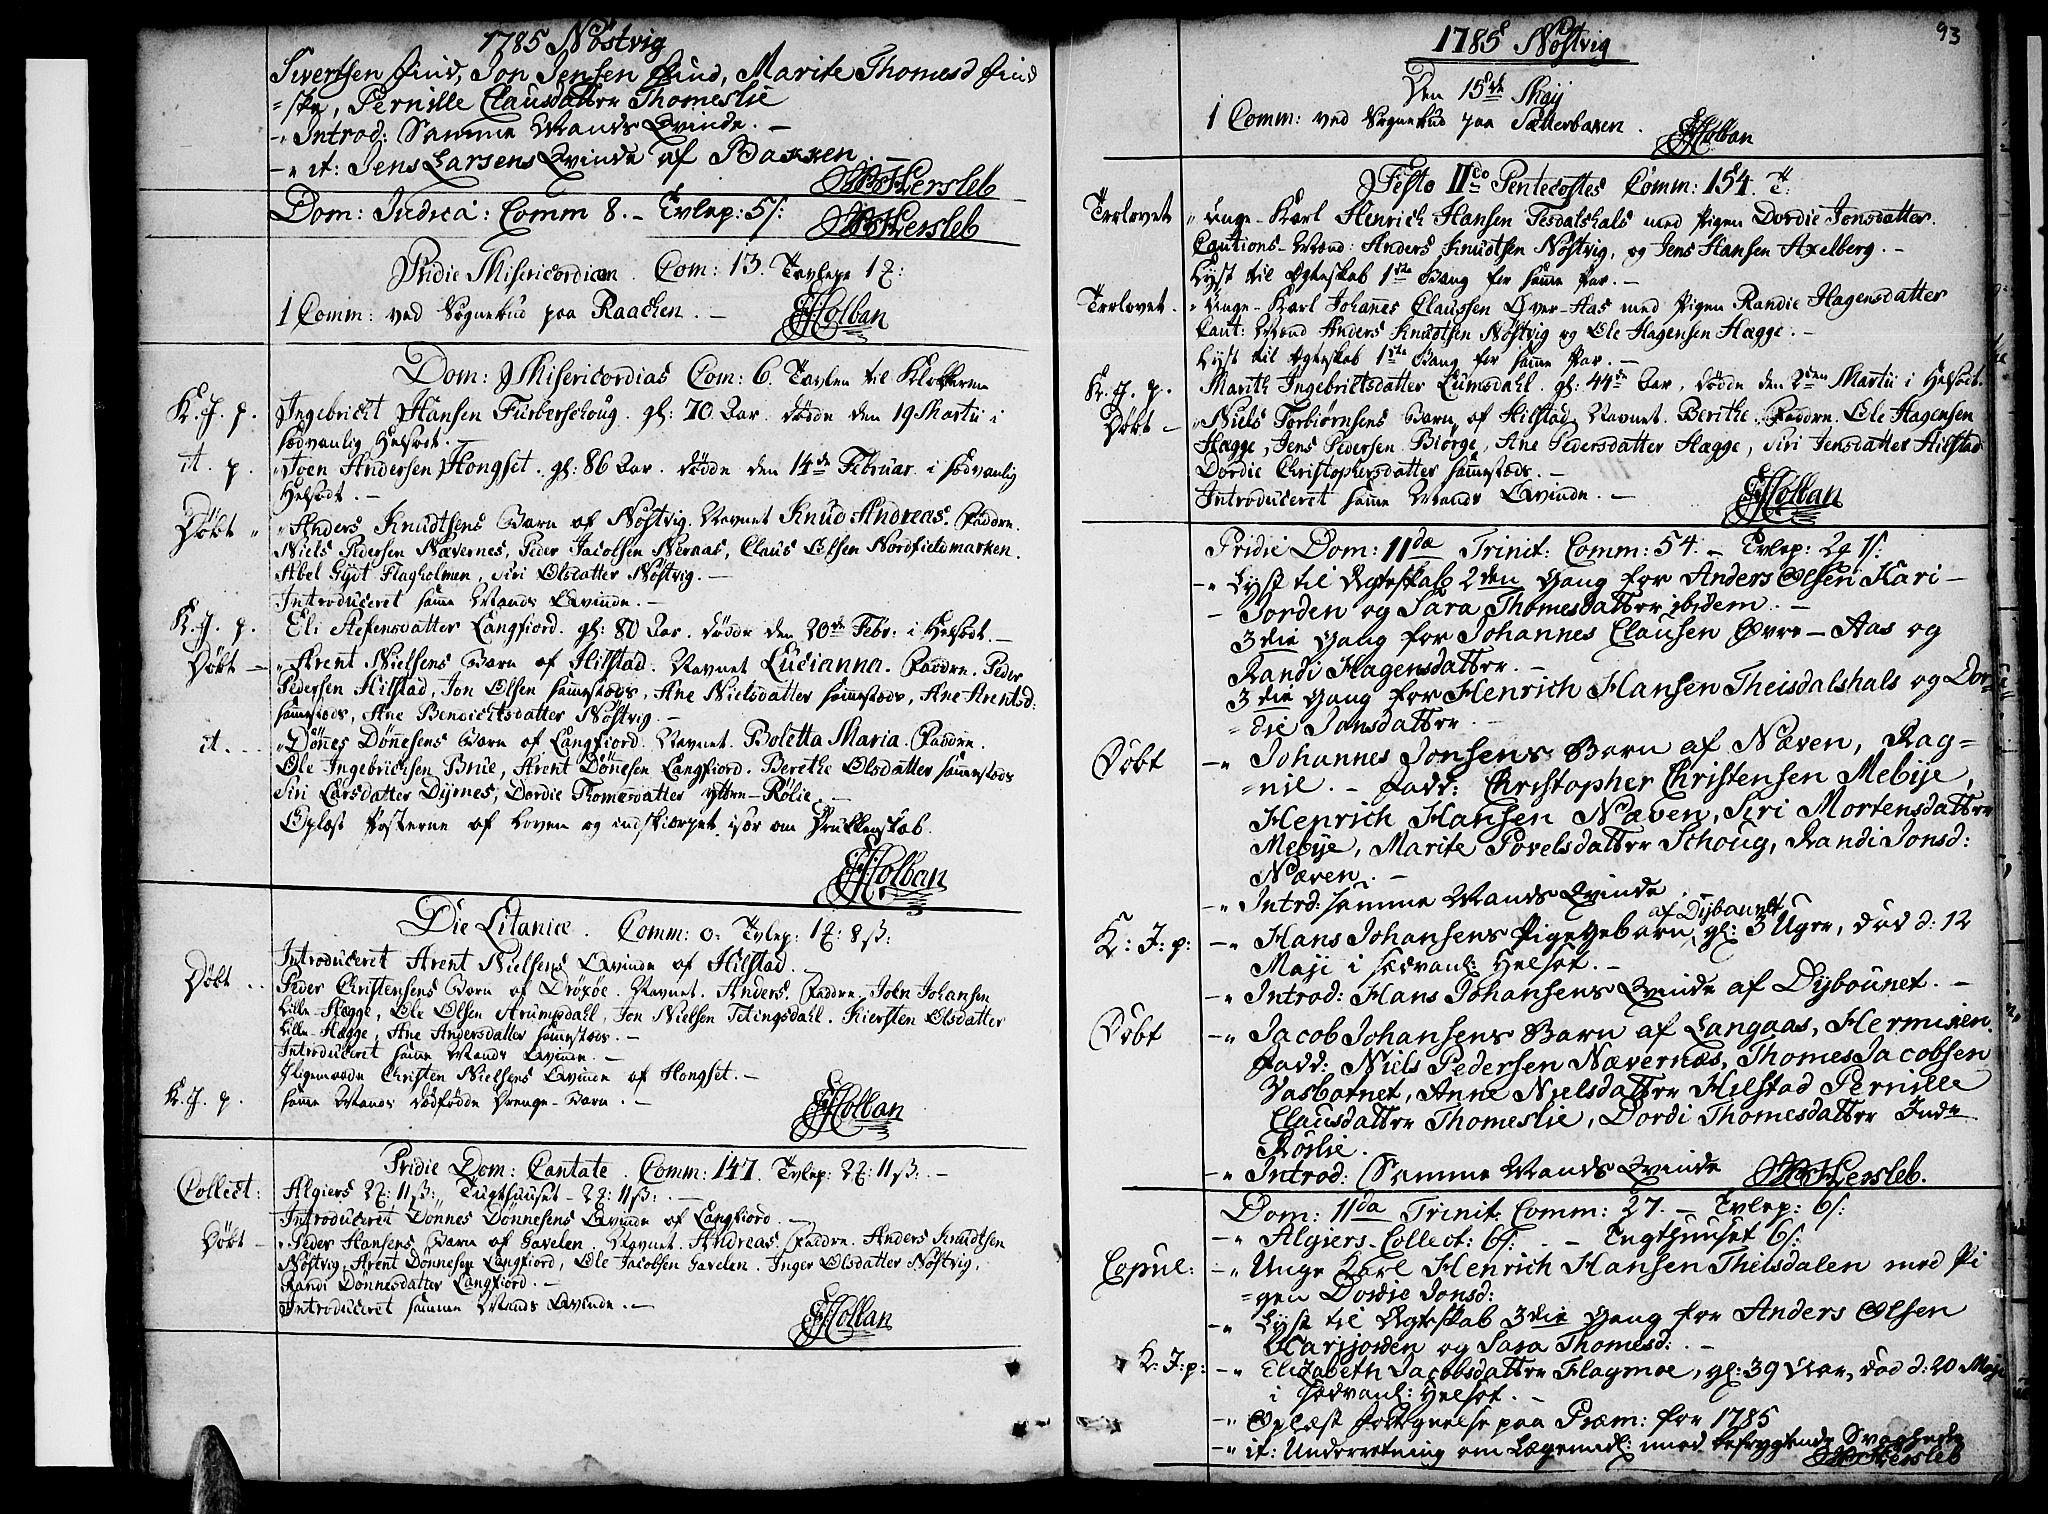 1785 Nöstvig
Sivertsen Find, Jon Jensen Find, Marite Thomesd Find
=ske, Pernille Clausdatter Thomeslie
-„ Introd: Samme Mands Qvinde. -
-„ it: Jens Larsens Qvinde af Bakken. -
Hersleb
Dom: Judica: Comm 8. - Tvlep: 5 ß:
Hersleb
Pridie Misericordiam. Com: 13. Tavlepe 1
1 Comm: ved Sognebud paa Raachen. -
Holban
Dom: Misericordias Com: 6. Tavlen til Klokkeren
K. J. p. Ingebricht Hansen Furberschoug. gl: 70 Aar. døde den 19 Martii i
sædvanlig Helsodt. -
it. p. „Joen Andersen Hongset. gl: 86 Aar. døde den 14de Februar. i sædvanlig
Helsodt. -
Døbt „ „Anders Knudtsens Barn af Nöstvig. Navnet Knud Andreas. Faddre.
Niels Pedersen Nævernes, Peder Jacobsen Neraas, Claus Olsen Nordfieldmarken.
Abel Gydt Flagholmen, Siri Olsdatter Nöstvig. -
Introduceret samme Mands Qvinde. -
K. J. p. Eli Stefensdatter Langfiord. gl: 80 Aar. døde den 20de Febr: i Helsodt. -
Døbt - „Arent Nielsens Barn af Hilstad. Navnet Lucianna. Faddre. Peder
Pedersen Hilstad, Jon Olsen sammesteds, Ane Nielsdatter sammesteds, Ane Arentsd:
sammesteds, Ane Bendichtsdatter Nöstvig. -
it. - „Dønes Dønnesens Barn af Langfiord. Navnet. Boletta Maria. Faddre.
Ole Ingebrichsen Brue, Arent Dønnesen Langfiord. Berethe Olsdatter sammesteds
Siri Larsdatter Dyrnes, Dordie Thomesdatter yttre-Rølie. -
Oplæst Posterne af Loven og indskierpet isør om Drukkenskab.
Holban
Die Litaniæ. Comm: 0. Tvlep: 1 8 ß: -
Introduceret Arent Nielsens Qvinde af Hilstad. -
Døbt Peder Christensens Barn af Drøxøe. Navnet. Anders. Faddre. Joen Johansen
Lille-Hægge, Ole Olsen Arumsdahl, Jon Nielsen Tetingsdahl. Kiersten Olsdatter
Lille-Hægge, Ane Andersdatter sammesteds. -
Introduceret samme Mands Qvinde. -
Ligemaade Christen Nielsens Qvinde af Hongset. -
K. J. p. samme Mands Dødfødde Drenge-Barn. -
Holban
Pridie Dom: Cantate. Comm: 147. Tvlep: 2 11 ß: -
Collect: Algiers 2 11 ß: „ Tugthuuset - 2 11 ß: -
Introduceret Dønnes Dønnesens Qvinde af Langfiord. -
Døbt - „Peder Hansens Barn af Gavelen. Navnet. Andreas. Faddre. Anders Knudtsen
Nöstvig, Arent Dønnesen Langfiord, Ole Jacobsen Gavelen. Inger Olsdatter Nöstvig,
Randi Dønnesdatter Langfiord. -
Introduceret samme Mands Qvinde. -
Holban
93
1785 Nöstvig
Den 15de Maij
1 Comm: ved Sognebud paa Sætterbaken.
Holban
Festo IIdo Pentecostes Comm: 154. T.
Trolovet „Unge-Karl Henrich Hansen Tesdalshals med Pigen Dordie Jonsdatter.
Cautions-Mænd: Anders Knudtsen Nöstvig, og Jens Hansen Axelberg. -
Lyst til Ægteskab 1ste Gang for samme Par. -
Trolovet. „Unge-Karl Johannes Claussen Øver-Aas med Pigen Randie Hagensdatter
Caut: Mænd Anders Knudtsen Nöstvig og Ole Hagensen Hægge. -
Lyst til Ægteskab 1ste Gang for samme Par. -
K. J. p. Marith Ingebrittsdatter Lumsdahl. gl: 44de Aar. døde den 2den Martii i Helsodt.
Døbt - „Niels Torbiørnsens Barn af Hilstad. Navnet. Berithe. Faddre. Ole Hagensen
Hægge, Jens Pedersen Biørge, Ane Pedersdatter Hægge, Siri Jensdatter Hilstad
Dordie Christophersdatter sammesteds. -
Introduceret samme Mands Qvinde. -
Holban
Pridie Dom: 11da Trinit: Comm: 54. - Tvlep: 2 1 ß:
-„ Lyst til Ægteskab 2den Gang for Anders Olsen Kari-
- Jorden og Sara Thomesdatter ibidem. -
3die Gang for Johannes Clausen Øvre-Aas og
Randi Hagensdatter. -
3die Gang for Henrich Hansen Theisdalshals og Dor=
=die Jonsdatter. -
Døbt -„ Johannes Jonsens Barn af Næven, Rag=
=nil. - Fadd: Christopher Christensen Mebÿe,
Henrich Hansen Næven, Siri Mortensdatter
Mebÿe, Marite Povelsdatter Schoug, Randi Jonsd:
Næven. -
-„ Introd: samme Mands Qvinde.
K: J: p: -„ Hans Johansens Pigebarn af Dijbounet, gl: 3 Uger, død d: 12
Maji i sædvanl: Helsot. -
-„ Introd: Hans Johansens Qvinde af Dÿbounet. -
Døbt -„ Jacob Johansens Barn af Langaas, Hermisen.
Fadd: Niels Pedersen Nævernæs, Thomes Jacobsen
Vasbotnet, Anne Nielsdatter Hilstad Pernille
Clausdatter Thomeslie, Dordi Thomesdatter Inde
Rørlie. -
-„ Introd: Samme Mands Qvinde
Hersleb.
Dom: 11da Trinit. Comm: 27. - Tvlep: 6 ß:
-„ Algiers-Collect: 6 ß: - Tugthuuset 6 ß:
Copul: -„ Unge Karl Henrich Hansen Theisdalen med Pi
=gen Dordie Jonsd:
-„ Lyst til Ægteskab 3die Gang for Anders Olsen
Karijorden og Sara Thomesd: -
K: J: p: -„ Elisabeth Jacobsdatter Flagmoe, gl: 39 Aar, død d: 20 Maji
i sædvanl: Helsot. -
-„ Oplæst Fortegnelse paa Præm: for 1785
-„ it: Underretning om Lægemidl: imod befrygtende Svaghed
Hersleb